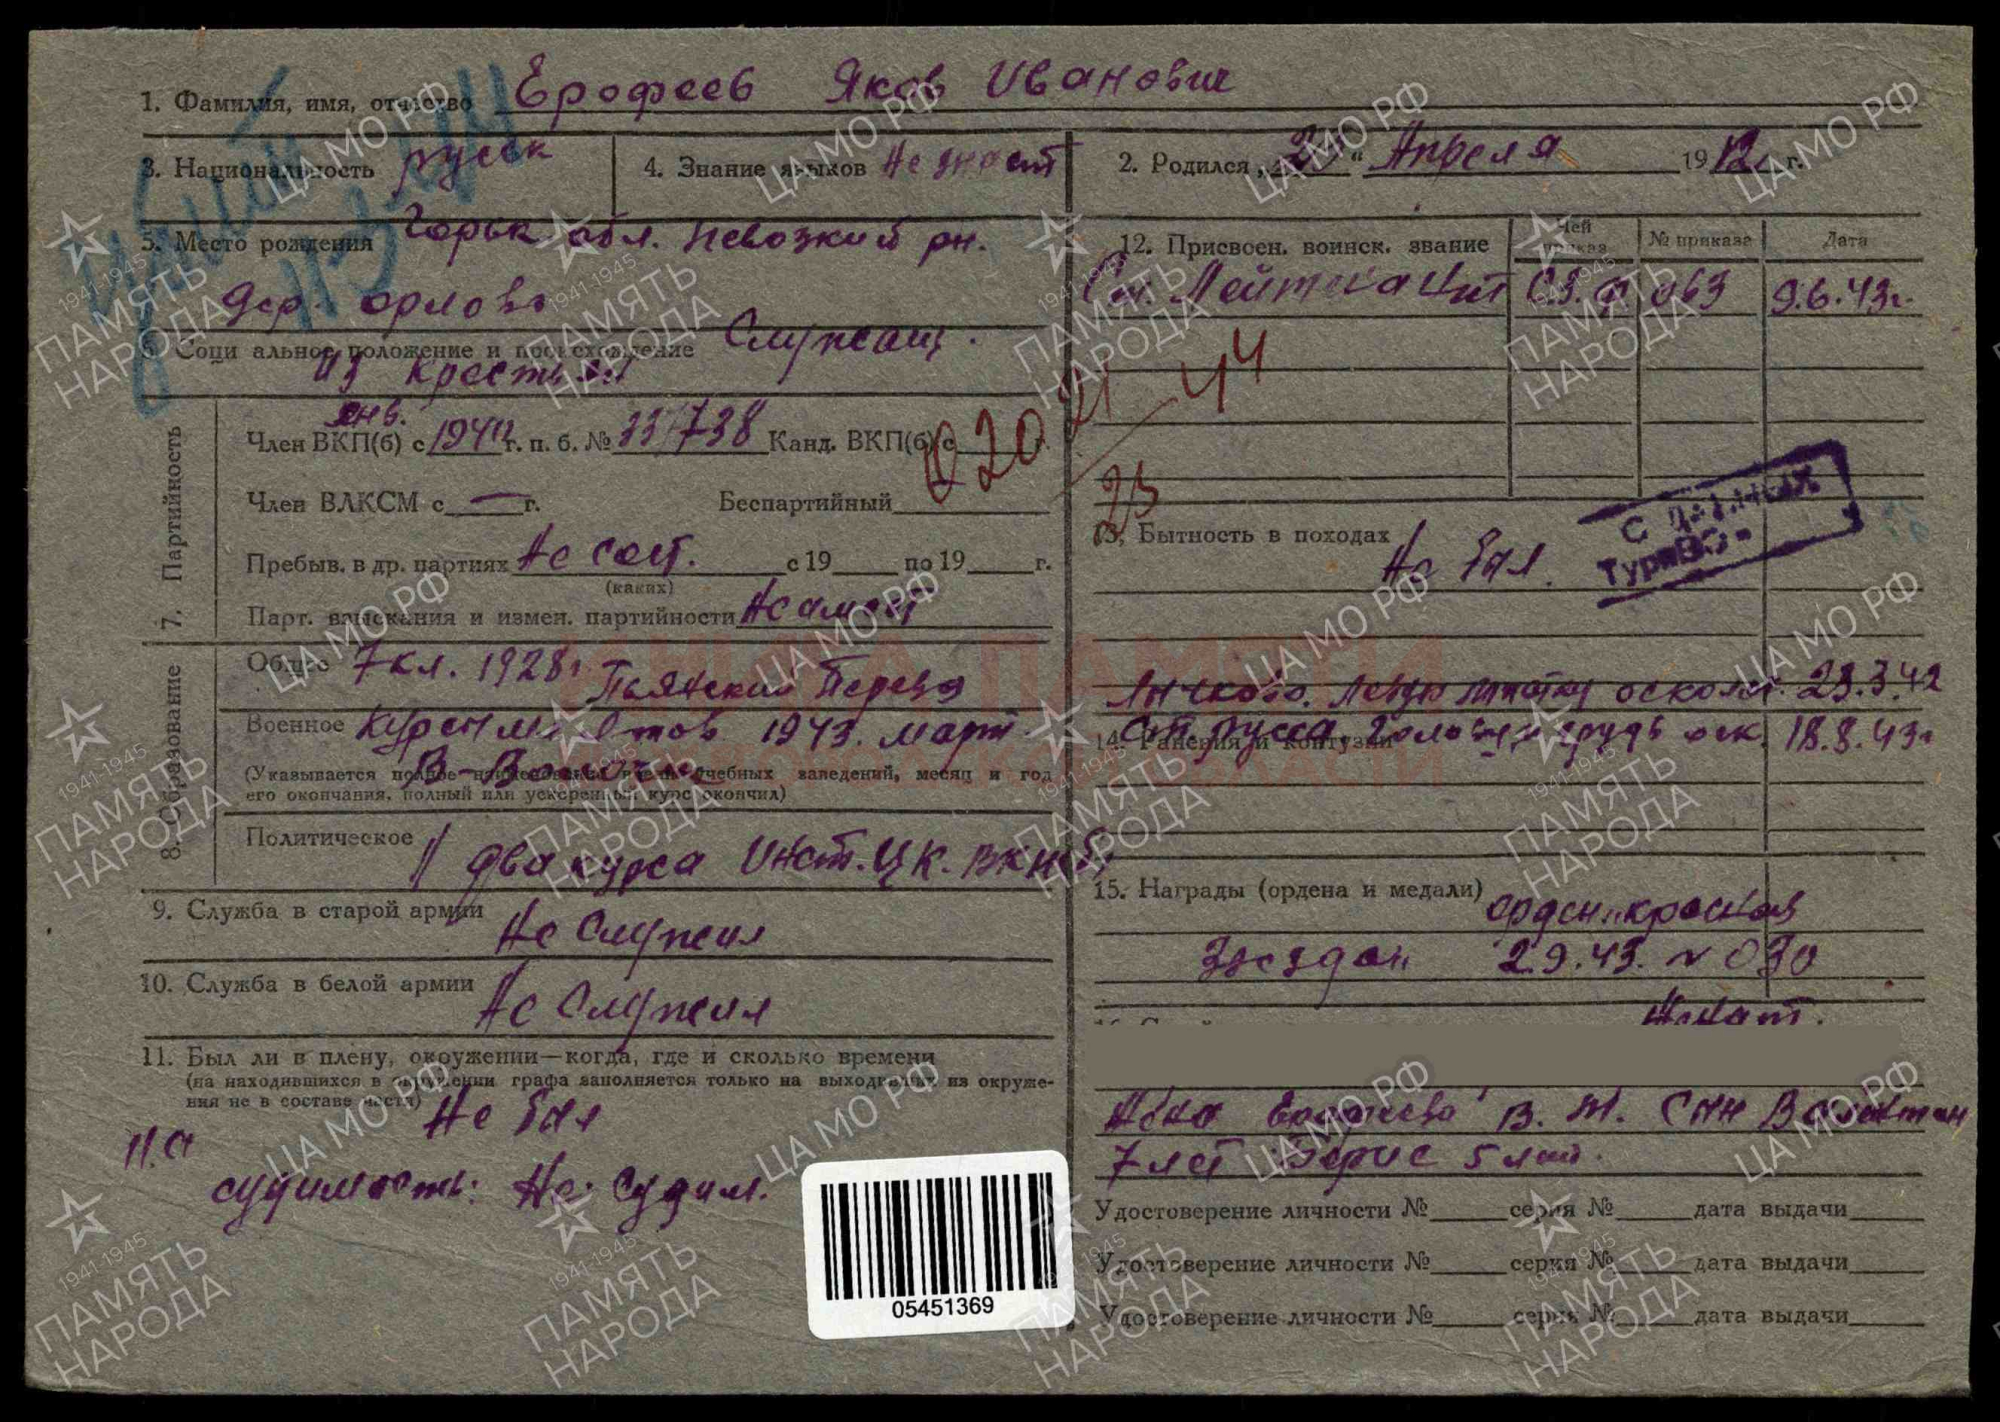 1. Фамилия, имя, отчество Ерофеев Яков Иванович
3. Национальность русск
4. Знание языков Не знает
2. Родился „ “ Апреля 1912 г.
5. Место рождения Горьк. обл. Невозкий рн.
дер. Орлово
6. Социальное положение и происхождение Служащ.
из крестьян
7. Партийность
Член ВКП(б) с янв. 1940 г. п. б. № 33/738 Канд. ВКП(б) с г.
Член ВЛКСМ с — г. Беспартийный
Пребыв. в др. партиях Не сост. с 19 по 19 г.
(каких)
Парт. взыскания и измен. партийности Не имеет
8. Образование
Общее 7 кл. 1928г. Пьянский Перевоз
Военное Курсы 1943. март
В-Волочк
(Указывается полное наименование военно-учебных заведений, месяц и год
его окончания, полный или ускоренный курс окончил)
Политическое два курса Инст. ЦК. ВКП(б)
9. Служба в старой армии Не Служил
10. Служба в белой армии Не Служил
11. Был ли в плену, окружении—когда, где и сколько времени
(на находившихся в окружении графа заполняется только на выходивших из окруже-
ния не в составе части) Не был
судимость: Не судим.
убит
020 21/23 44
12. Присвоен. воинск. звание
Чей приказ
№ приказа
Дата
Ст. Лейтенант СЗ.ф 063 9.6.43г.
13. Бытность в походах Не был.
С данных
ТуркВО.
Лычково. Левую осколоч. 23.3.42
14. Ранения и контузии
Ст. Русса. голову и грудь оск. 18.8.43г
15. Награды (ордена и медали) орден „красная
звезда" 2.9.43. № 030
Женат.
Жена Ерофеева В. Т. Сын Валентин
7 лет Борис 5 лет.
Удостоверение личности № серия № дата выдачи
Удостоверение личности № серия № дата выдачи
Удостоверение личности № серия № дата выдачи
05451369
КНИГА ПАМЯТИ
ЦА МО РФ
1941-1945
ПАМЯТЬ
НАРОДА